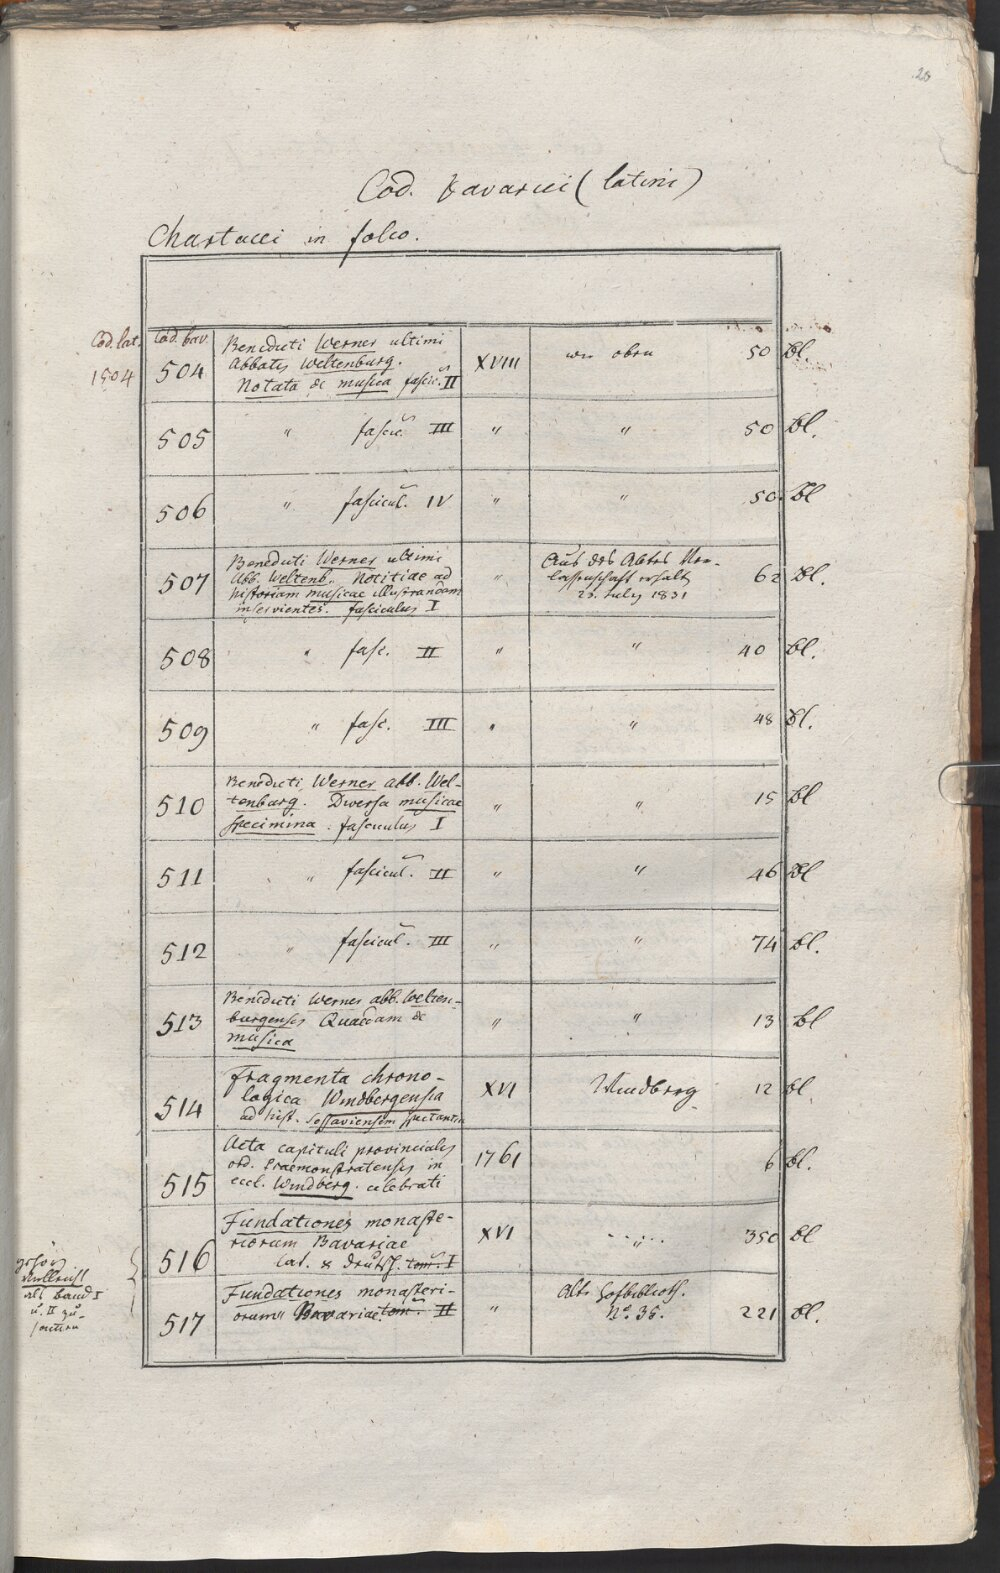 20
Cod. bavarici (latini)
Chartacei in folio.
Cod. lat. Cod. bav.
1504 504 Benedicti Werner ultimi
Abbatis Weltenburg.
Notata de musica fascic. II XVIII wie oben 50 Bl.
505 " fascic. III " " 50 Bl.
506 " fascicul. IV " " 50. Bl
507 Benedicti Werner ultimi
Abb. Weltenb. Notitiae ad
historiam musicae illustrandam
inservientes. fasciculus I " Aus des Abtes Ver-
lassenschaft erhalt.
23. July 1831 62 Bl.
508 " fasc. II " " 40 Bl.
509 " fasc. III " " 48 Bl.
510 Benedicti Werner abb. Wel-
tenburg. Diversa musicae
specimina. fasciculus I " " 15 Bl
511 " fascicul. II " " 46 Bl
512 " fascicul. III " " 74 Bl.
513 Benedicti Werner abb. Welten-
burgensis Quaedam de
musica " " 13 Bl
514 Fragmenta chrono-
logica Windbergensia
ad hist. spectantia XVI Windberg 12 Bl
515 Acta capituli provincialis
ord. Praemonstratensis in
eccl. Windberg. celebrati 1761 6 Bl.
516 Fundationes monaste-
riorum Bavariae
lat. & deutsch. tom. I XVI " 350 Bl
517 Fundationes monasteri-
orum Bavariae. tom. II " Alte Hofbiblioth.
No. 36. 221 Bl.
als Band I
u. II zu-